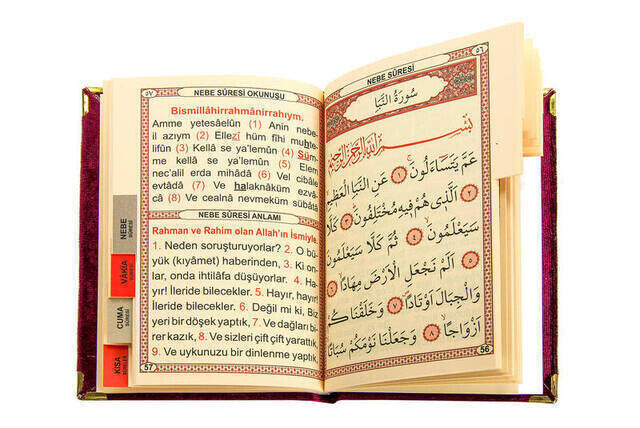 ٥٦
NEBE SÛRESİ
سُورَةُ النَّبَإِ
بِسْمِ اللّٰهِ الرَّحْمٰنِ الرَّحِيمِ
عَمَّ يَتَسَٓاءَلُونَۚ ﴿١﴾ عَنِ النَّبَأِ الْعَظِيمِ
اَلَّذِي هُمْ فِيهِ مُخْتَلِفُونَ ﴿٣﴾ كَلَّا
سَيَعْلَمُونَ ﴿٤﴾ ثُمَّ كَلَّا سَيَعْلَمُونَ
﴿٥﴾ اَلَمْ نَجْعَلِ الْاَرْضَ مِهَادًا
وَالْجِبَالَ اَوْتَادًا ﴿٧﴾ وَخَلَقْنَاكُمْ
اَزْوَاجًا ﴿٨﴾ وَجَعَلْنَا نَوْمَكُمْ سُبَاتًا
56
٥٧
NEBE SÛRESİ OKUNUŞU
Bismillâhirrahmânirrahıym.
Amme yetesâelûn (1) Anin nebe-
il azıym (2) Ellezî hüm fîhi muhte-
lifûn (3) Kellâ se ya'lemûn (4) Süm-
me kellâ se ya'lemûn (5) Elem
nec'alil erda mihâdâ (6) Vel cibâle
evtâdâ (7) Ve halaknâküm ezvâ-
câ (8) Ve cealnâ nevmeküm sübâtâ
NEBE SÛRESİ ANLAMI
Rahman ve Rahim olan Allah'ın İsmiyle.
1. Neden soruşturuyorlar? 2. O bü-
yük (kıyâmet) haberinden, 3. Ki on-
lar, onda ihtilâfa düşüyorlar. 4. Ha-
yır! İleride bilecekler. 5. Hayır, hayır!
İleride bilecekler. 6. Değil mi ki, Biz
yeri bir döşek yaptık, 7. Ve dağları bi-
rer kazık, 8. Ve sizleri çift çift yarattık,
9. Ve uykunuzu bir dinlenme yaptık,
57
NEBE
SÛRESİ
VÂKIA
CUMA
SÛRESİ
KISA